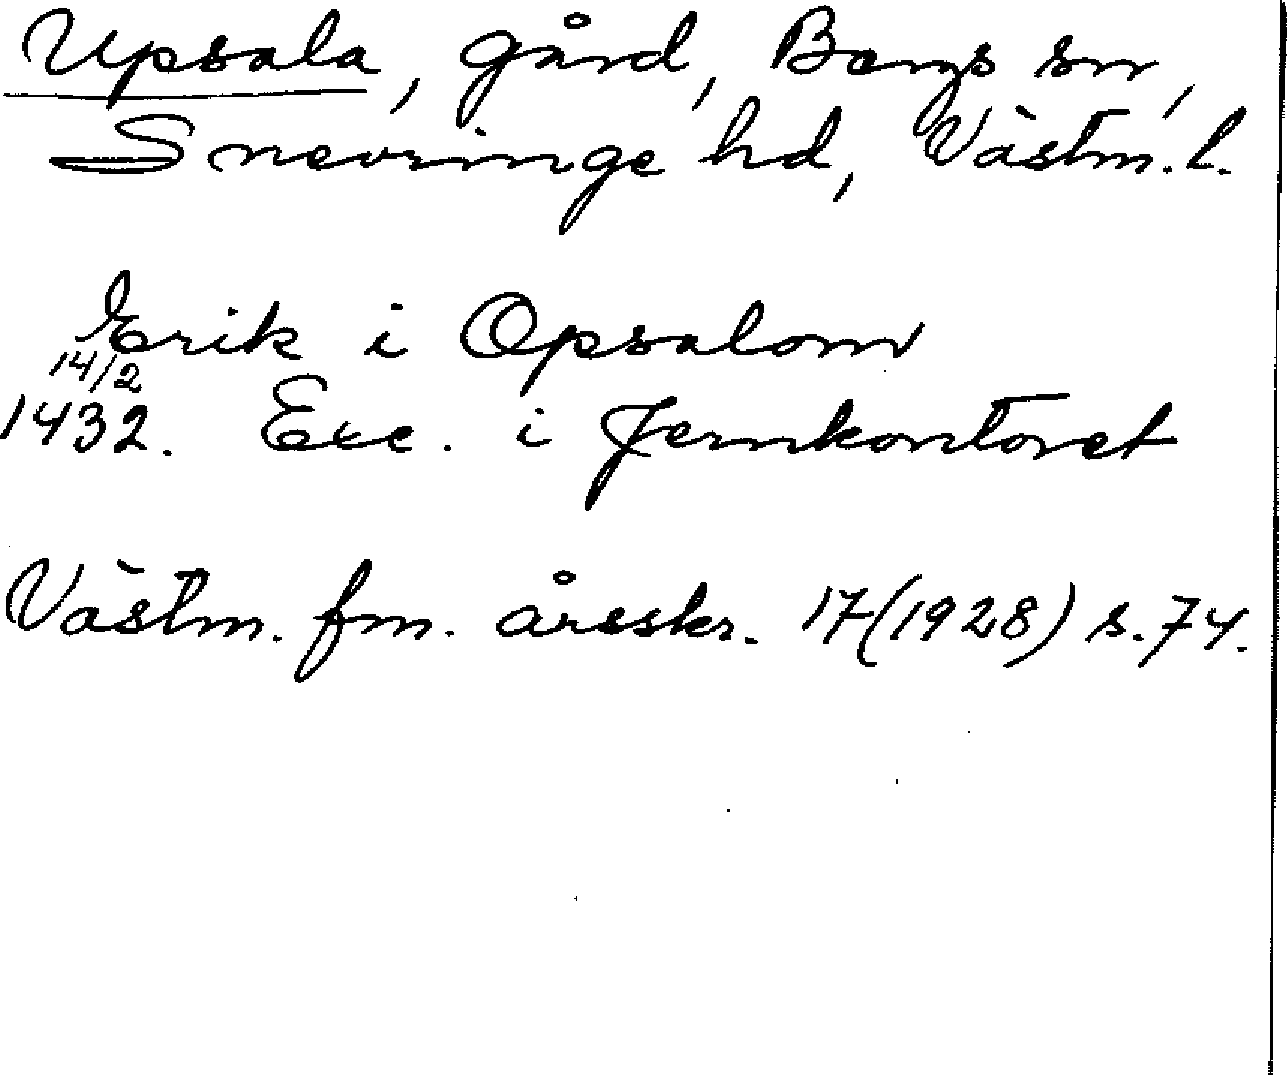 Upsala, gård, Bergs sn,
Snevringe hd, Västm. l.
Erik i Opsalom
14/2
1432. Exc. i Jernkontoret
Västm. fm. årsskr. 17 (1928) s. 74.